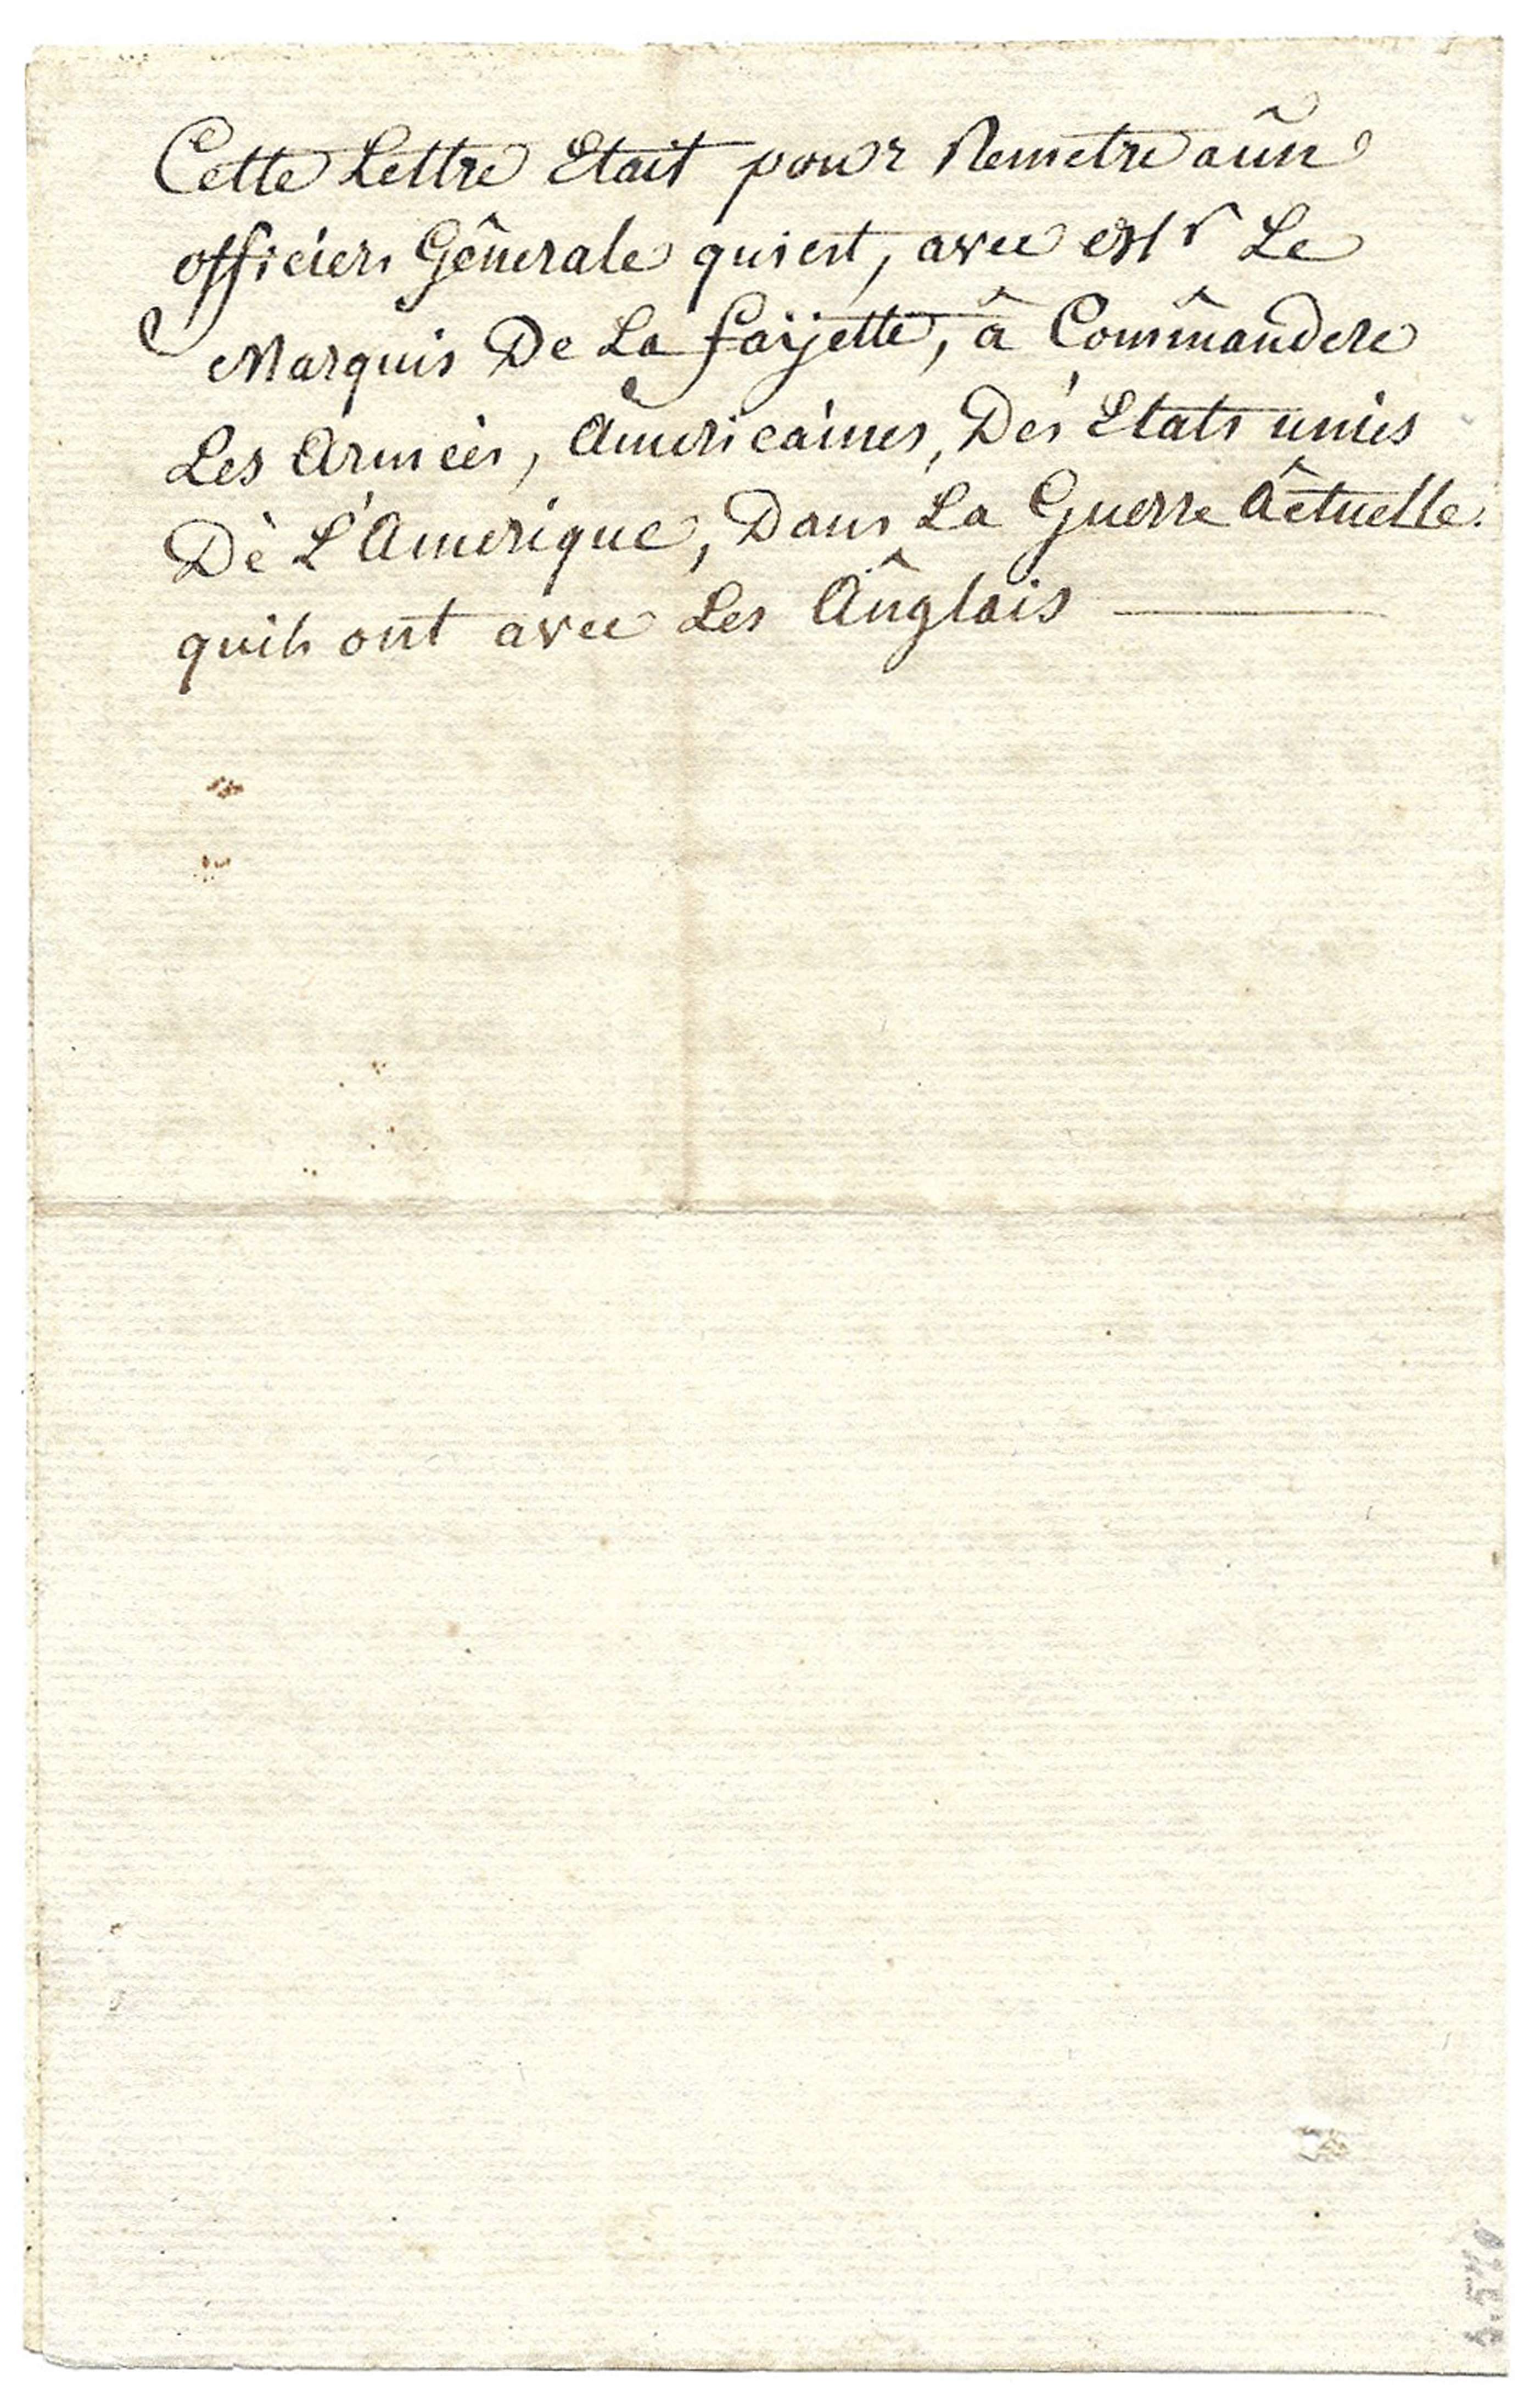 Cette Lettre Etait pour Remetre aûn
officiers Gênerale qui est, avec Mr Le
Marquis De La faÿette, â Commândere
Les Armeés, Americaines, Des Etats unies
Dè L'Amerique, Dans La Guerre Âctuelle.
quils ont avec Les Ânglais